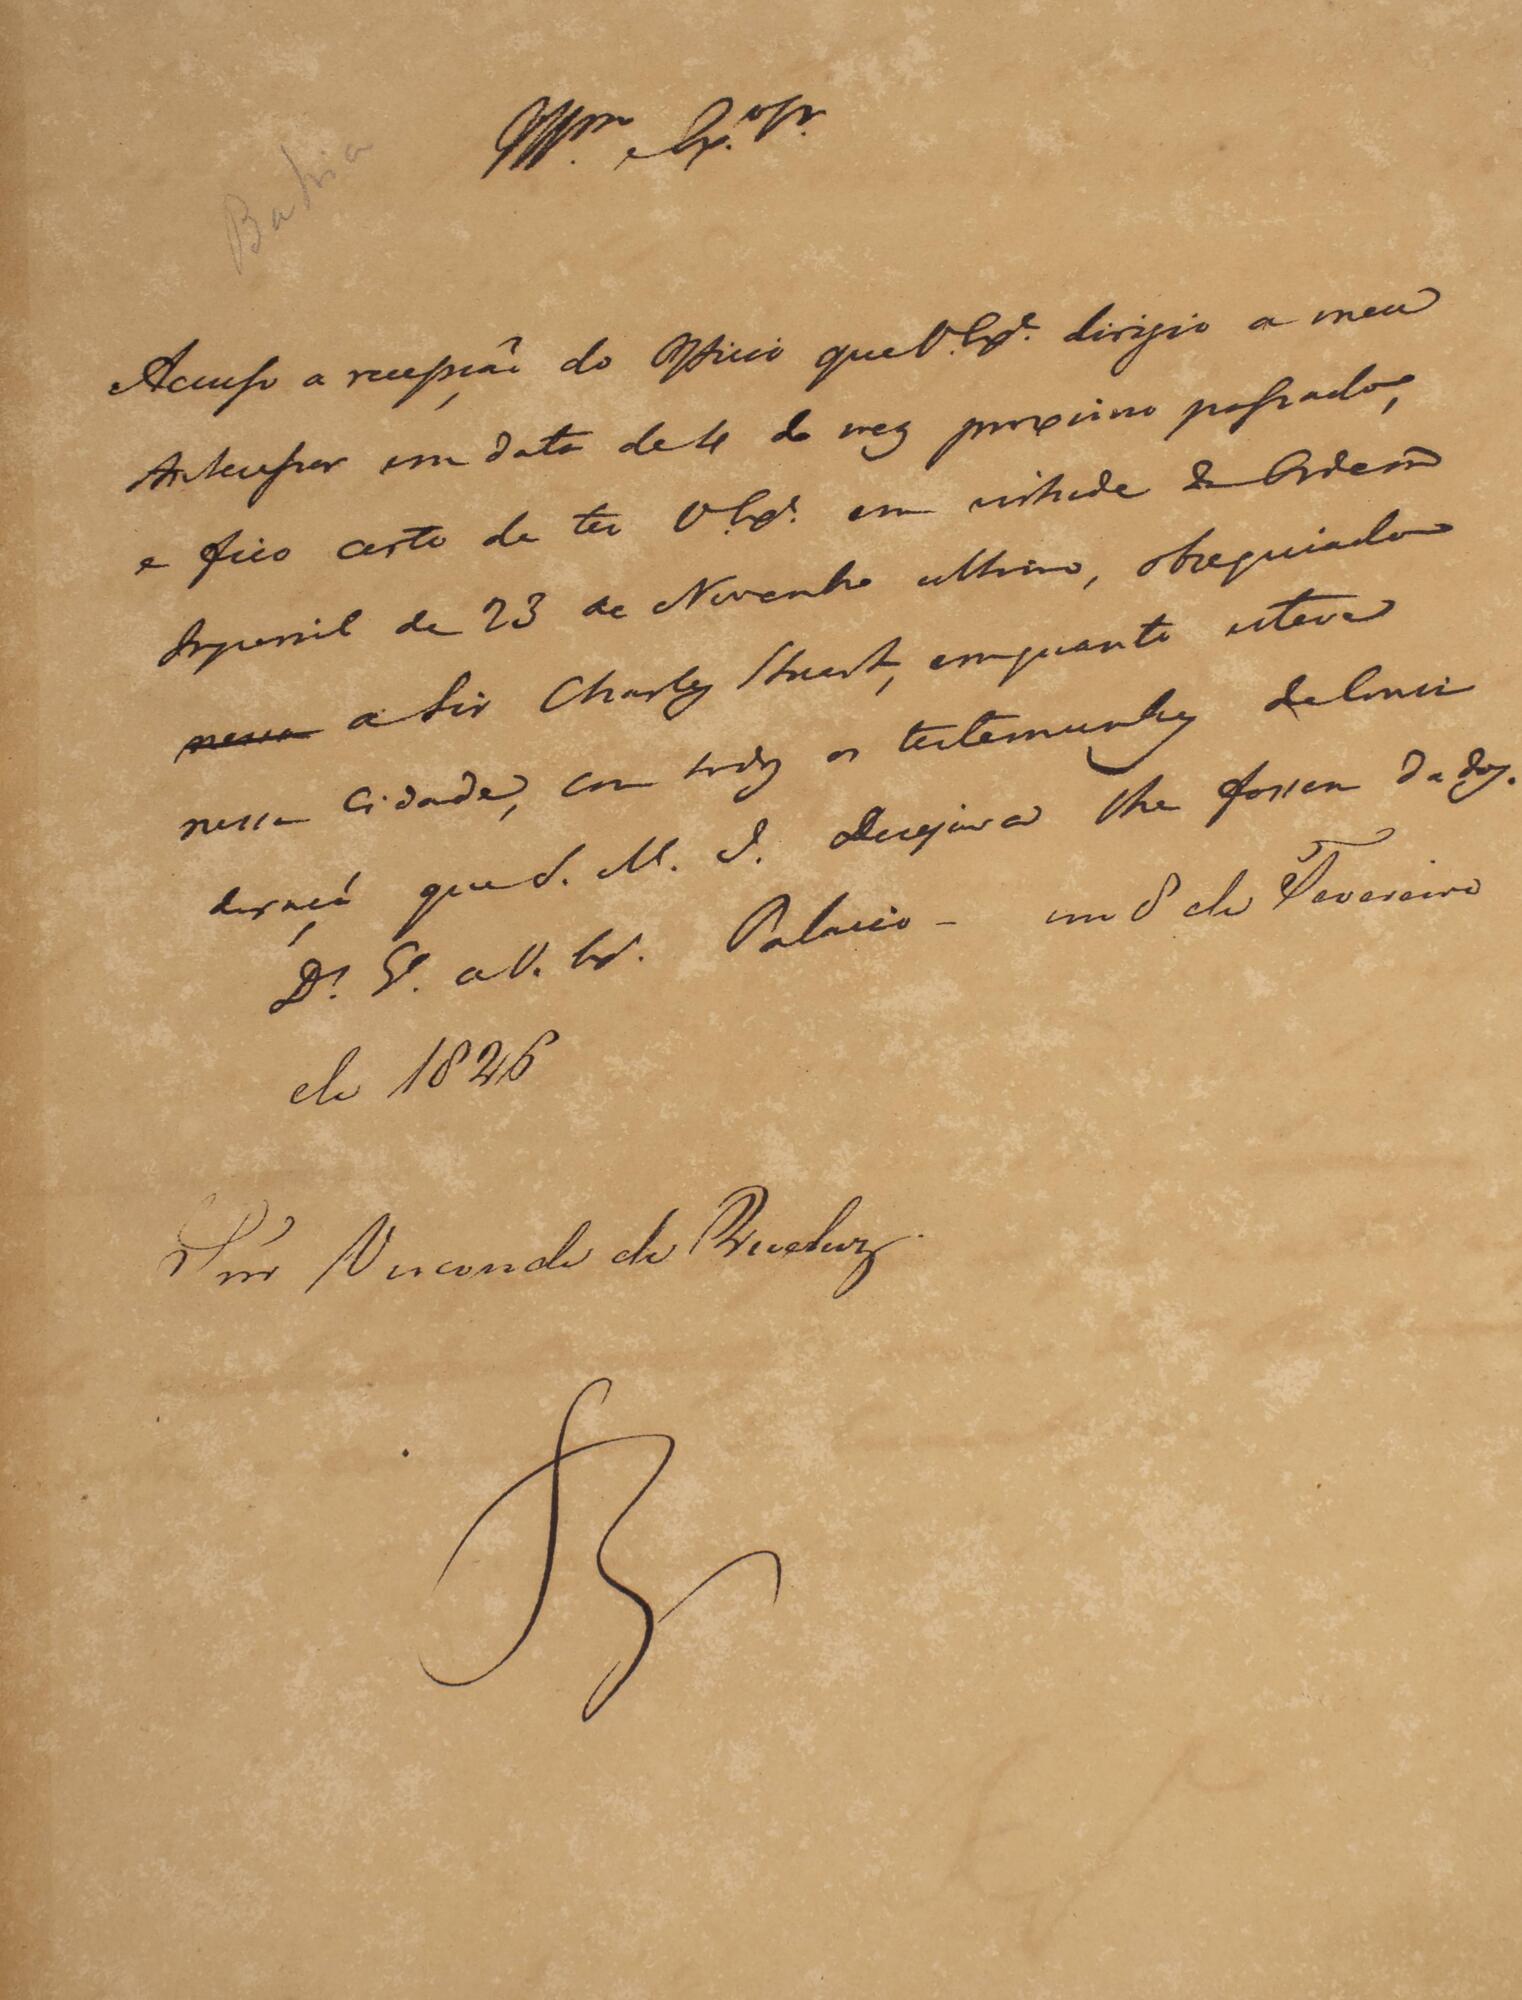 Illm.º e Ex.mo Sr.
Bahia
Accuso a recepção do Officio que V. Exª. dirigio a meu
Antecessor em data de 4 do mez proximo passado,
e fico certo de ter V. Exª. em virtude da Ordem
Imperial de 23 de Novembro ultimo, obsequiado
nessa a Sir Charles Stuart, emquanto esteve
nessa Cidade, com todos os testemunhos de Consi
deração que S. M. I. desejava lhe fossem dados.
D.s G.e a V. Ex.ª Palacio - em 8 de Fevereiro
de 1826
Snr Visconde de Queluz.